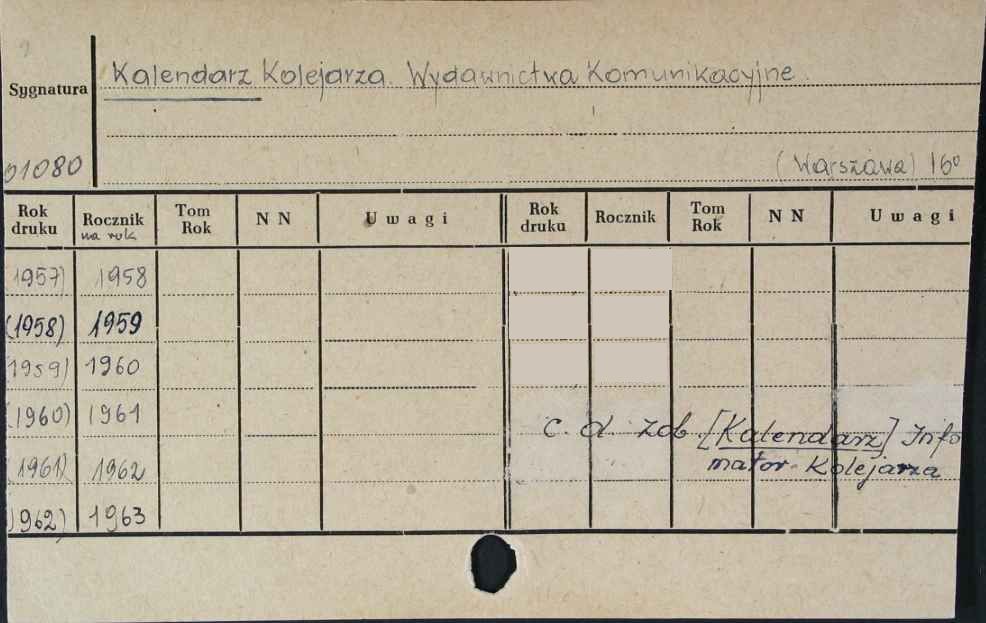 Kalendarz Kolejarza. Wydawnictwa Komunikacyjne.
Sygnatura
01080
(Warszawa) 16°
Rok druku Rocznik na rok Tom Rok N N Uwagi Rok druku Rocznik Tom Rok N N Uwagi
1957) 1958
(1958) 1959
1959) 1960
(1960) 1961
c. d. zob. [Kalendarz] Info
(1961) 1962
mator Kolejarza
1962) 1963